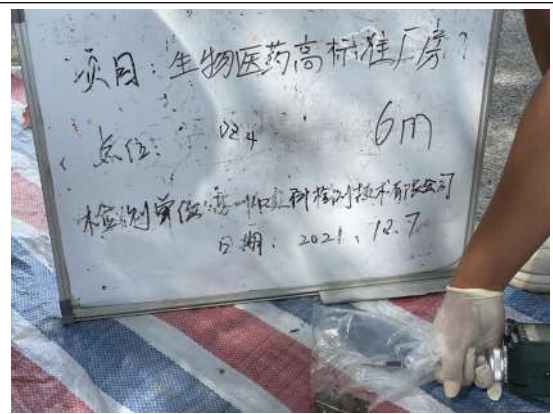 项目：生物医药高标准厂房
点位： 6m
检测单位：科检测技术有限公司
日期：2021.12.7